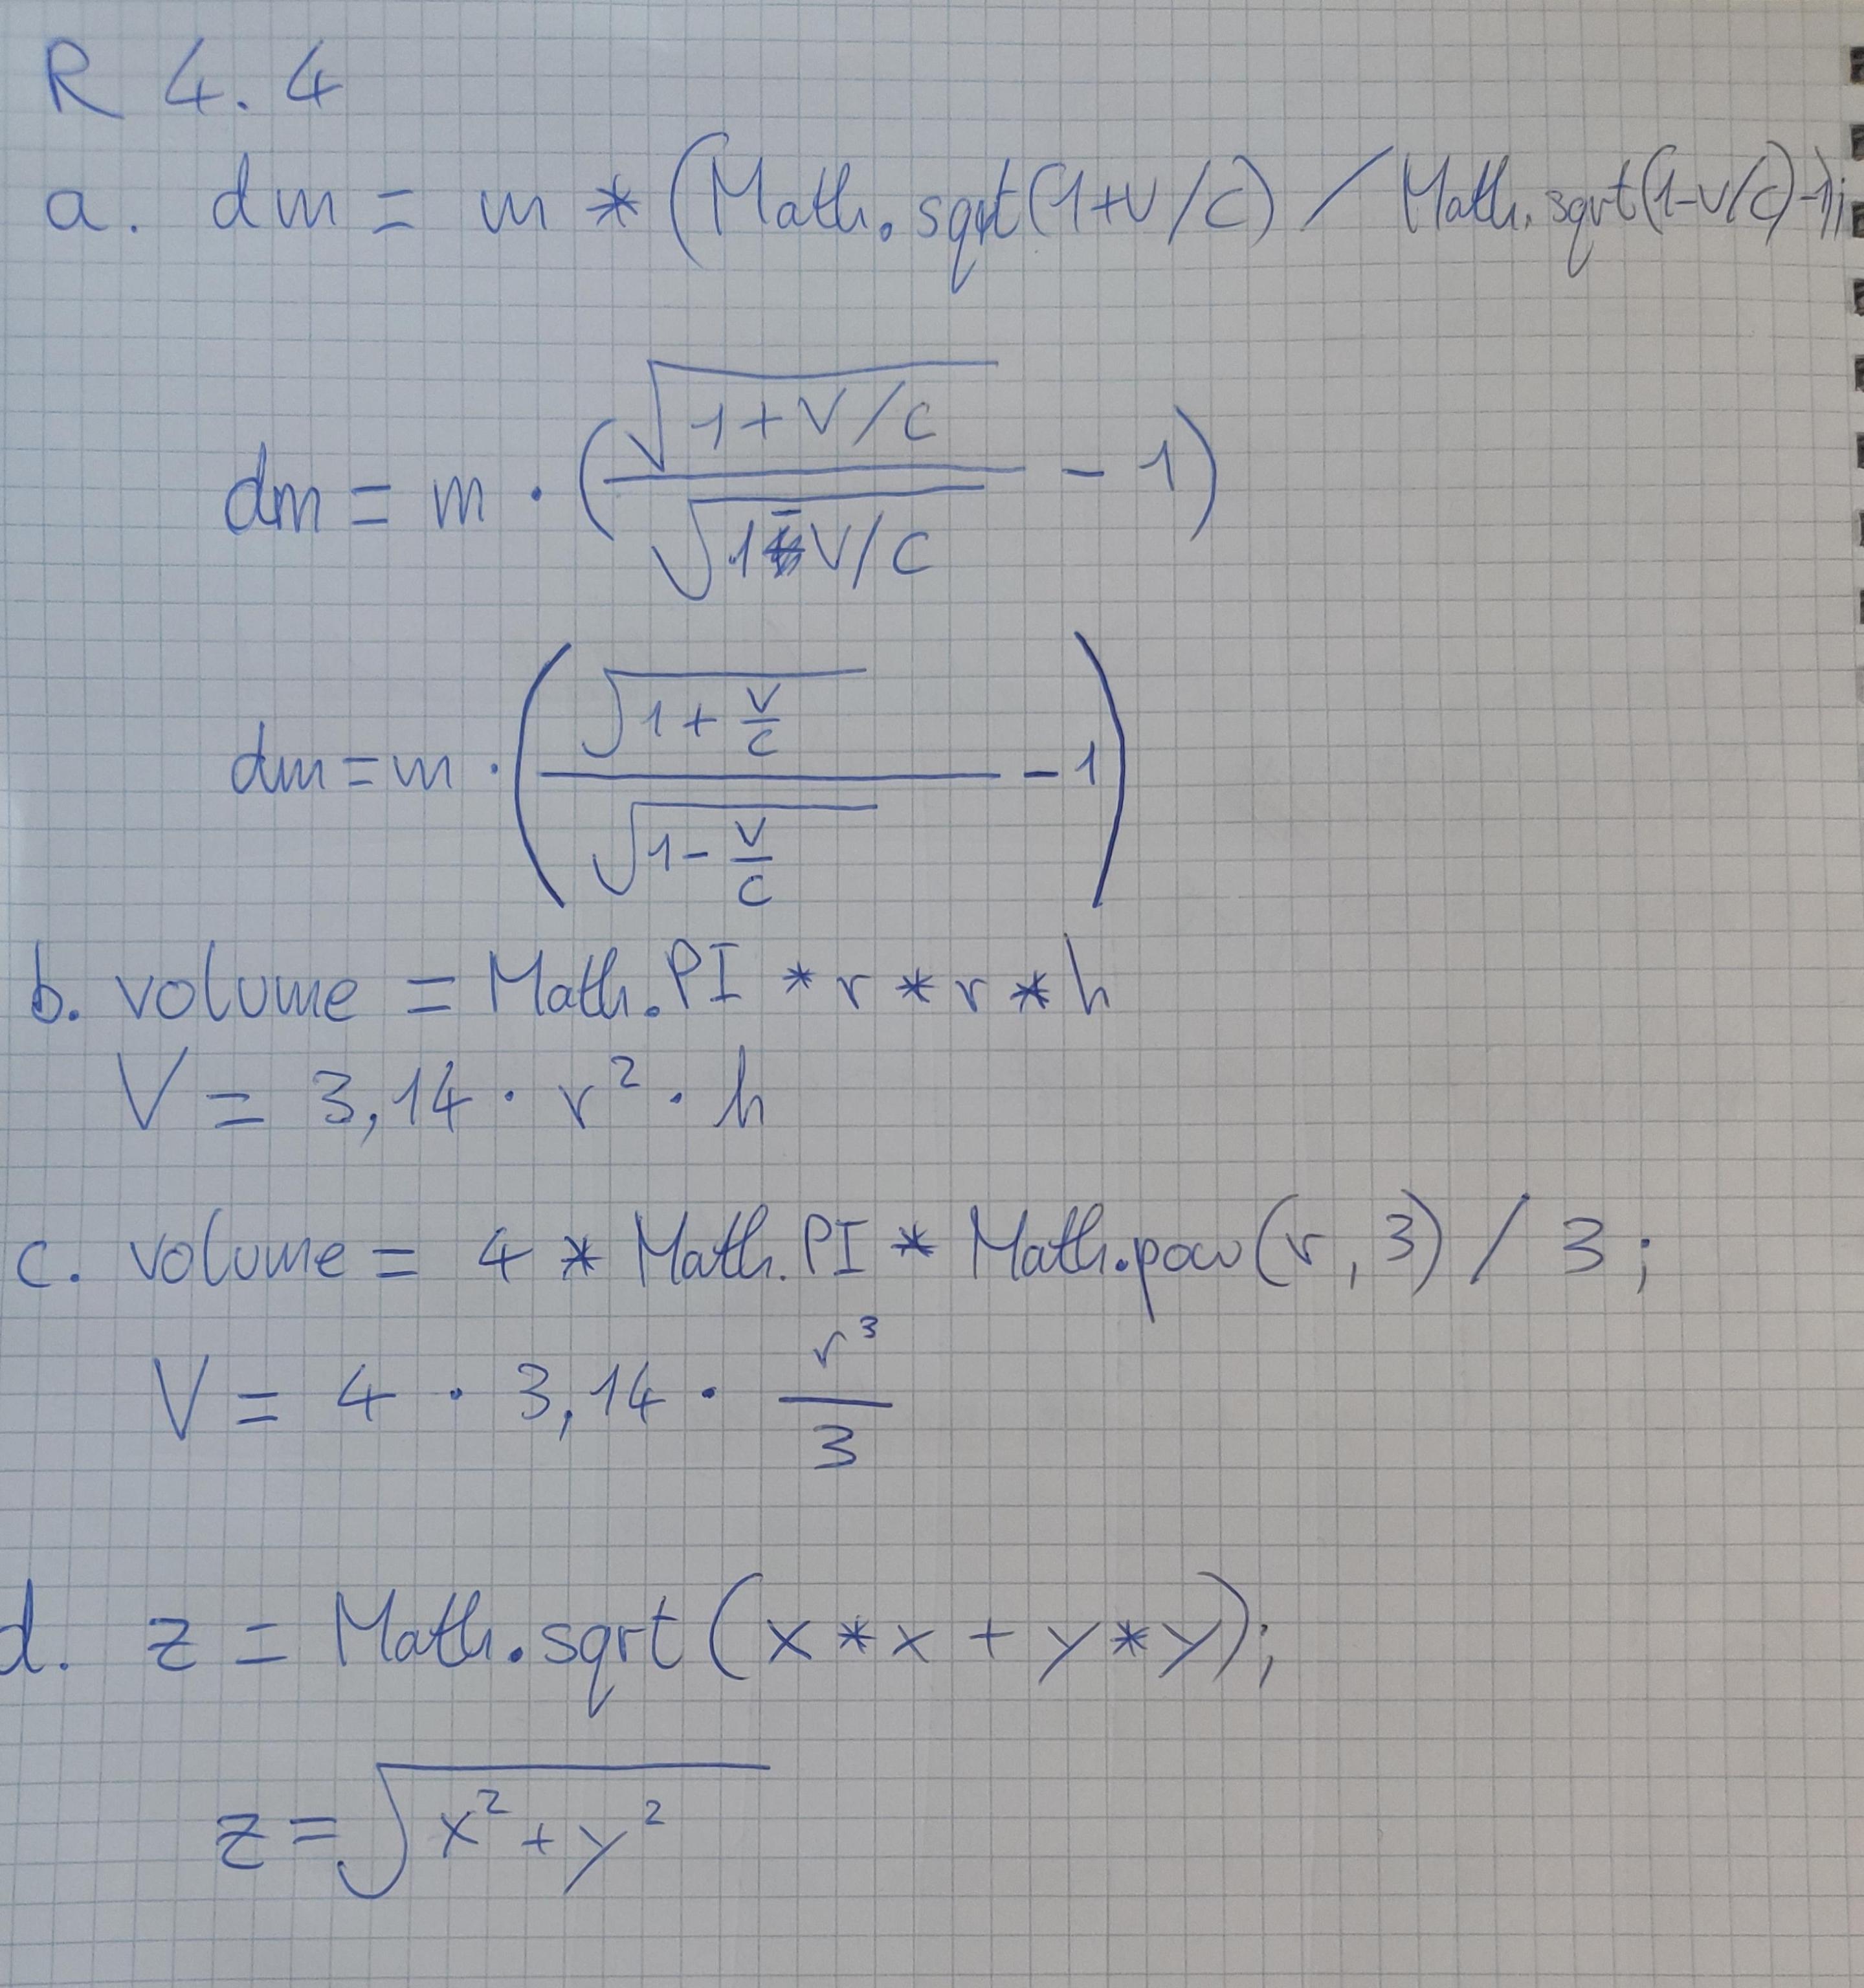 R 4.4
a. dm = m * (Math.sqrt(1+v/c) / Math.sqrt(1-v/c)-1);
dm = m · (√(1+v/c) / √(1-v/c) - 1)
dm = m · (√(1+v/c) / √(1-v/c) - 1)
b. volume = Math.PI * r * r * h
V = 3,14 · r² · h
c. volume = 4 * Math.PI * Math.pow(r, 3) / 3;
V = 4 · 3,14 · r³/3
d. z = Math.sqrt (x * x + y * y);
z = √(x² + y²)